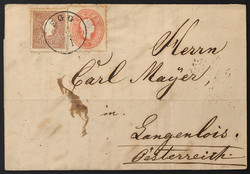 Herrn
Carl Mayer,
in
Langenlois,
Oesterreich.